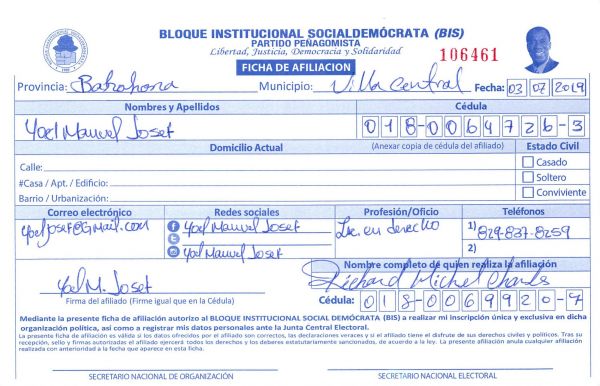 BLOQUE INSTITUCIONAL SOCIALDEMÓCRATA (BIS)
PARTIDO PEÑAGOMISTA
Libertad, Justicia, Democracia y Solidaridad
106461
FICHA DE AFILIACION
Provincia: Barahona Municipio: Villa Central Fecha: 03 07 2019
Nombres y Apellidos Cédula
Yoel Manuel Josef 018-0064726-3
Domicilio Actual (Anexar copia de cédula del afiliado) Estado Civil
Calle: Casado
#Casa / Apt. / Edificio: Soltero
Barrio / Urbanización: Conviviente
Correo electrónico Redes sociales Profesión/Oficio Teléfonos
yoeljosef@Gmail.com Yoel Manuel Josef Lic. en derecho 1) 829-837-8259
Yoel Manuel Josef 2)
Nombre completo de quien realiza la afiliación
Yoel M. Josef Richard Michel Charles
Firma del afiliado (Firme igual que en la Cédula) Cédula: 018-0069920-7
Mediante la presente ficha de afiliación autorizo al BLOQUE INSTITUCIONAL SOCIAL DEMÓCRATA (BIS) a realizar mi inscripción única y exclusiva en dicha
organización política, así como a registrar mis datos personales ante la Junta Central Electoral.
La presente ficha de afiliación es válida si los datos ofrecidos por el afiliado son correctos, las declaraciones veraces y si el afiliado tiene el disfrute de sus derechos civiles y políticos. Tras su
recepción, sello y firmas autorizadas el afiliado ejercerá todos los derechos y los deberes estatutariamente sancionados, de acuerdo a la ley. La presente afiliación anula cualquier afiliación
realizada con anterioridad a la fecha que aparece en esta ficha.
SECRETARIO NACIONAL DE ORGANIZACIÓN SECRETARIO NACIONAL ELECTORAL